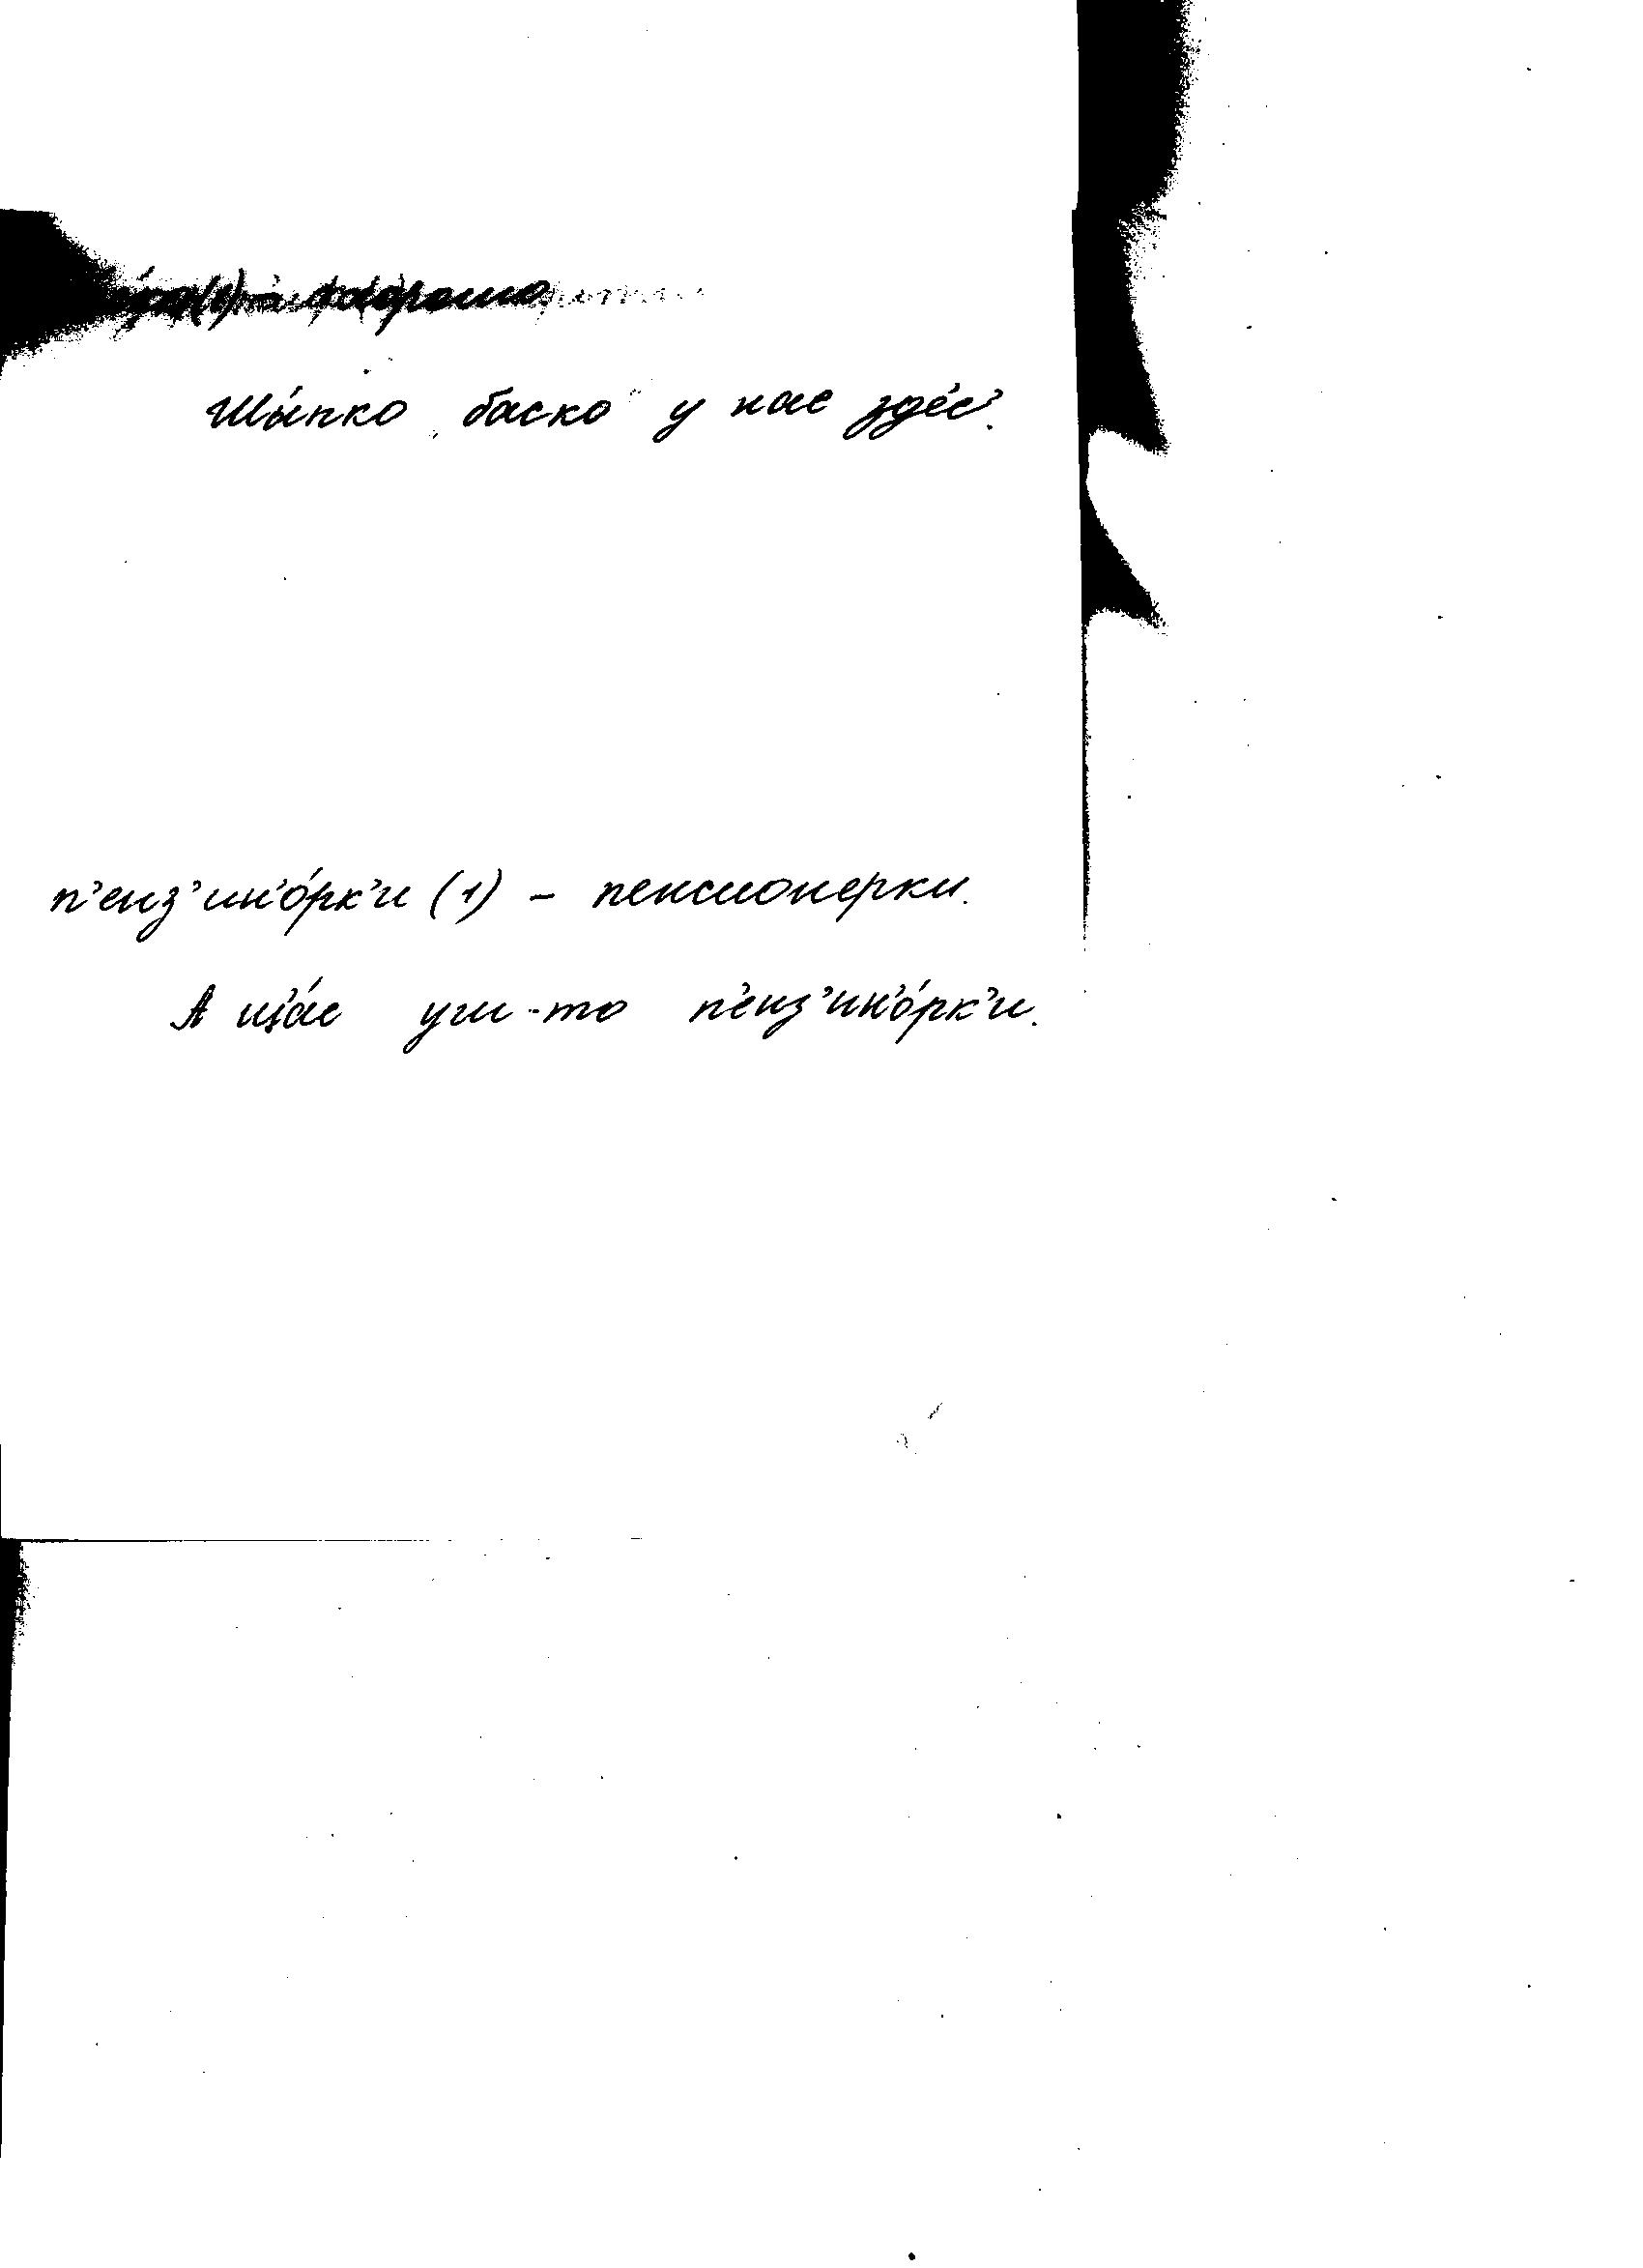 Шы́пко баско у нас зде́с’.
п’енз’ин’о́рк’и (1) – пенсионерки.
А щ’а́с уш-то п’енз’ин’о́рк’и.